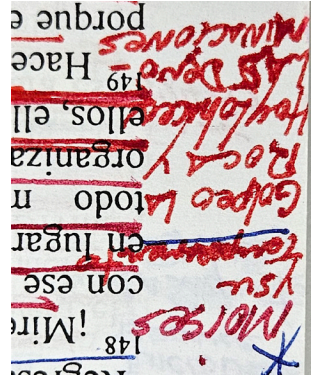 148 ¡Mire
con ese
en lugar
todo n
organiza
ellos, ell
149 Hace
porque e
MOISES
Y su
Temperamento
Golpeo LA
ROCA Y
Hoy lo hacen
LAS Deno-
MiNACIONES